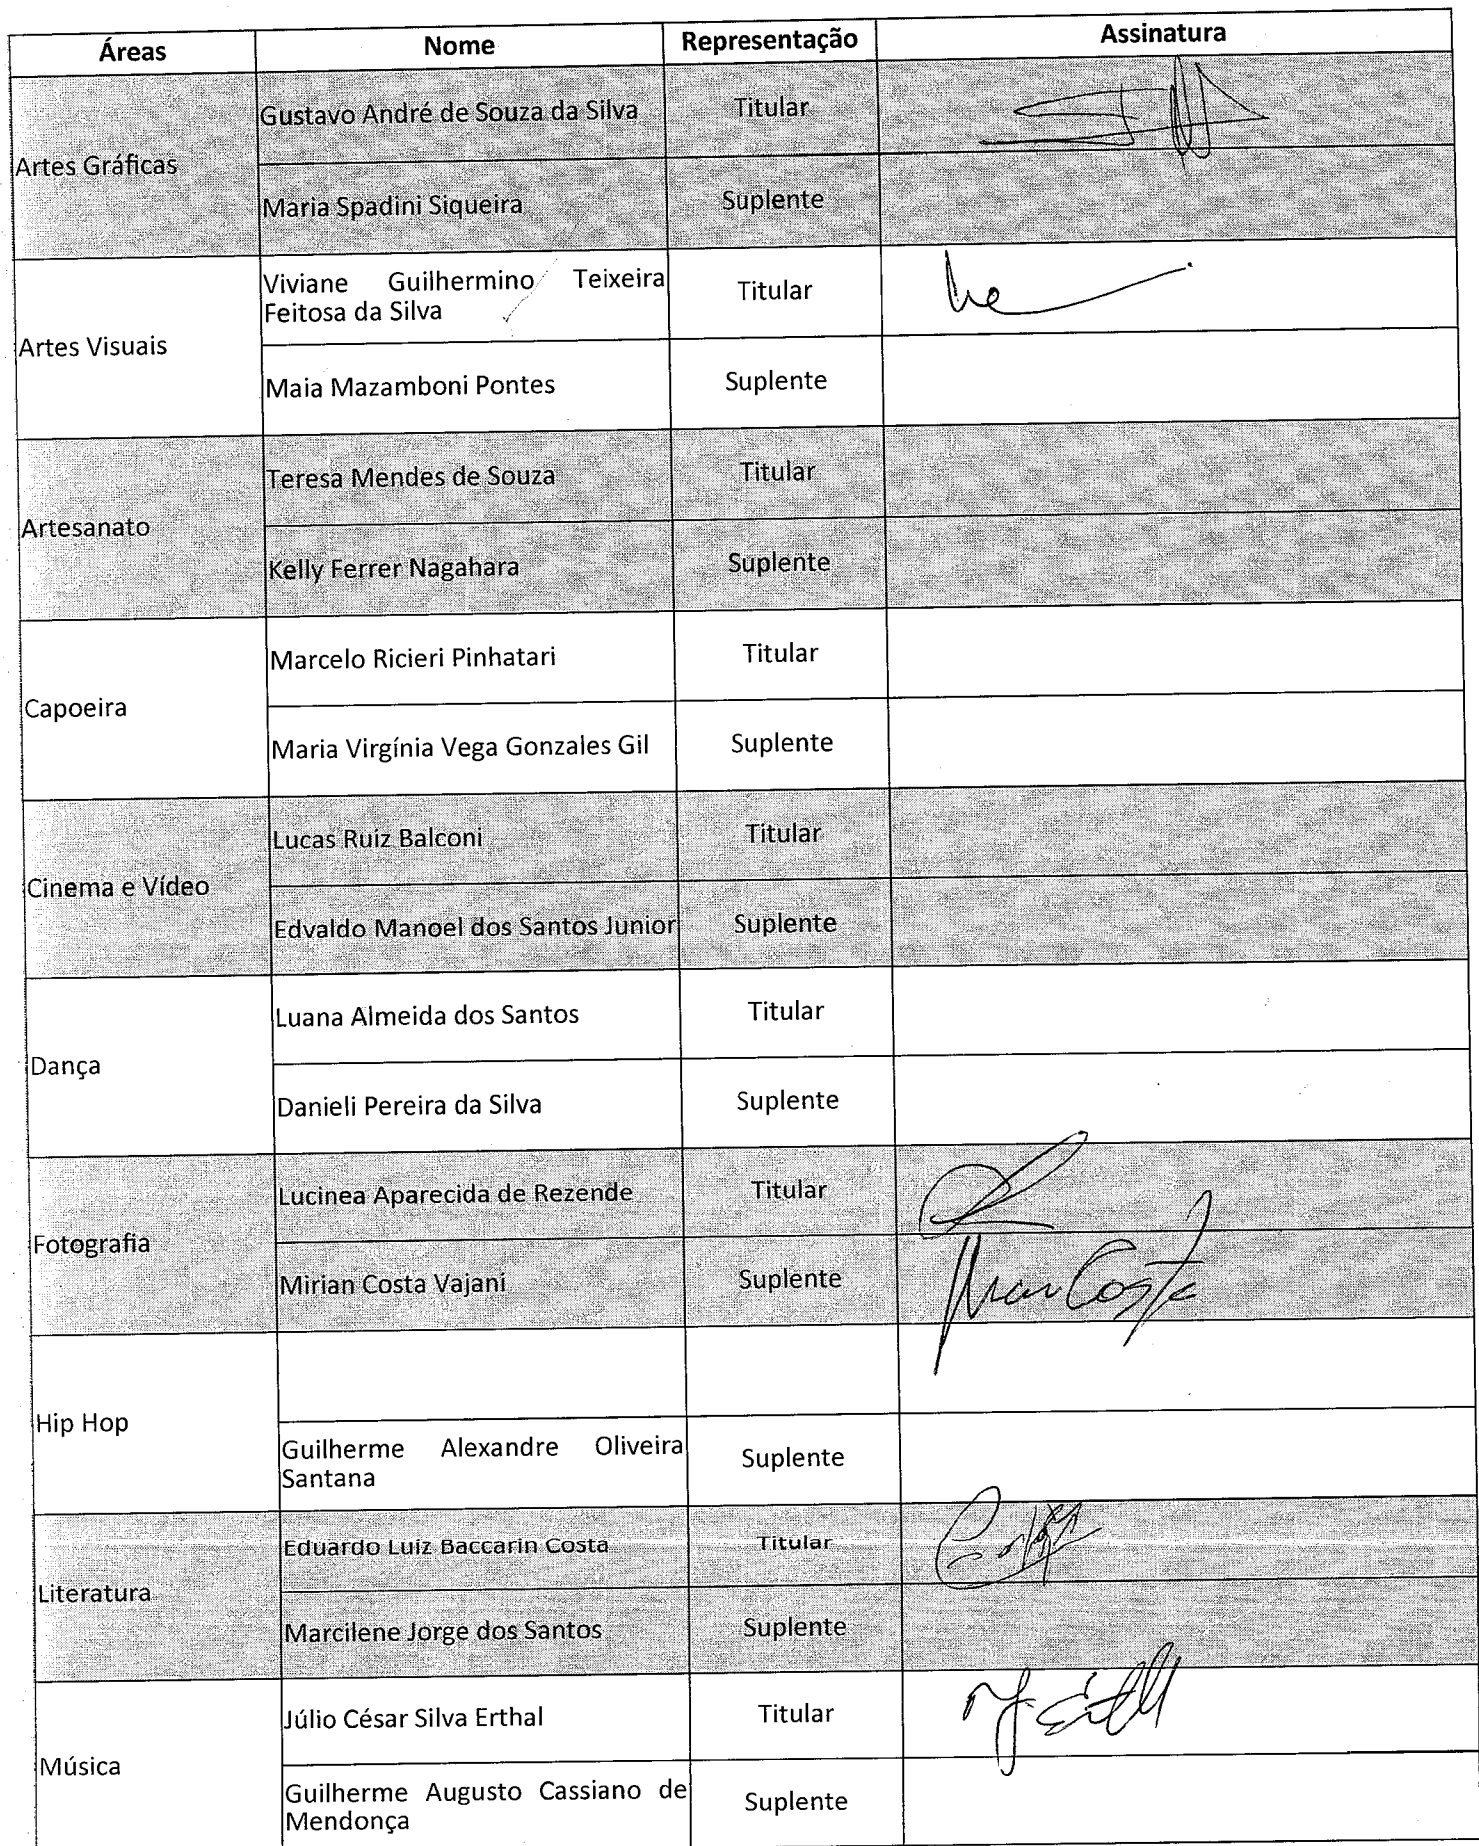 Áreas Nome Representação Assinatura
Artes Gráficas
Gustavo André de Souza da Silva Titular
Maria Spadini Siqueira Suplente
Artes Visuais
Viviane Guilhermino Teixeira
Feitosa da Silva
Titular
Maia Mazamboni Pontes Suplente
Artesanato
Teresa Mendes de Souza Titular
Kelly Ferrer Nagahara Suplente
Capoeira
Marcelo Ricieri Pinhatari Titular
Maria Virgínia Vega Gonzales Gil Suplente
Cinema e Vídeo
Lucas Ruiz Balconi Titular
Edvaldo Manoel dos Santos Junior Suplente
Dança
Luana Almeida dos Santos Titular
Danieli Pereira da Silva Suplente
Fotografia
Lucinea Aparecida de Rezende Titular
Mirian Costa Vajani Suplente Costa
Hip Hop
Guilherme Alexandre Oliveira
Santana
Suplente
Literatura
Eduardo Luiz Baccarin Costa Titular
Marcilene Jorge dos Santos Suplente
Música
Júlio César Silva Erthal Titular
Guilherme Augusto Cassiano de
Mendonça
Suplente